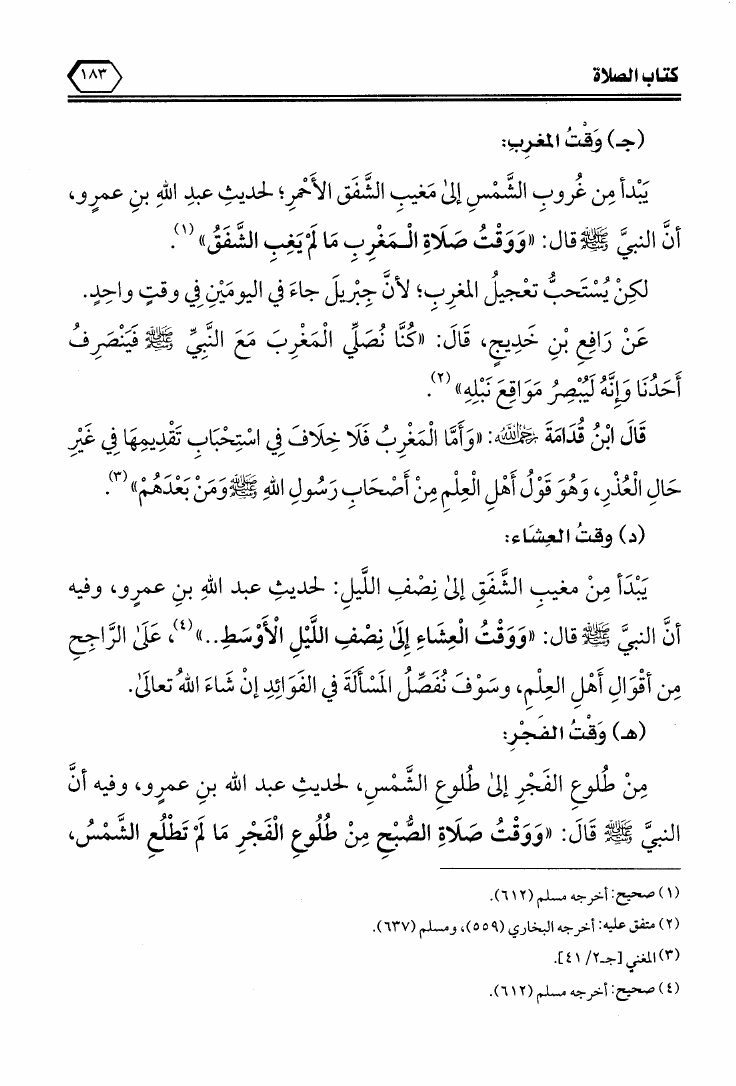 كتاب الصلاة
١٨٣
(جـ) وَقْتُ المغرِبِ:
يَبْدأ مِن غُروبِ الشَّمْسِ إلىٰ مَغيبِ الشَّفَق الأَحْمرِ؛ لحديثِ عبدِ اللهِ بنِ عمرٍو،
أنَّ النبيَّ ﷺ قال: «وَوَقْتُ صَلَاةِ الْـمَغْرِبِ مَا لَمْ يَغِبِ الشَّفَقُ» (١).
لكِنْ يُسْتَحبُّ تعْجيلُ المغرِبِ؛ لأنَّ جِبْريلَ جاءَ في اليومَيْنِ فِي وقتٍ واحِدٍ.
عَنْ رَافِعِ بْنِ خَدِيجٍ، قَالَ: «كُنَّا نُصَلِّي الْمَغْرِبَ مَعَ النَّبِيِّ ﷺ فَيَنْصَرِفُ
أَحَدُنَا وَإِنَّهُ لَيُبْصِرُ مَوَاقِعَ نَبْلِهِ» (٢).
قَالَ ابْنُ قُدَامَةَ رَحِمَهُ اللهُ: «وَأَمَّا الْمَغْرِبُ فَلَا خِلَافَ فِي اسْتِحْبَابِ تَقْدِيمِهَا فِي غَيْرِ
حَالِ الْعُذْرِ، وَهُوَ قَوْلُ أَهْلِ الْعِلْمِ مِنْ أَصْحَابِ رَسُولِ اللهِ ﷺ وَمَنْ بَعْدَهُمْ» (٣).
(د) وقتُ العِشَاء:
يَبْدَأ مِنْ مغيبِ الشَّفَقِ إلىٰ نِصْفِ اللَّيلِ: لحديثِ عبد اللهِ بنِ عمرٍو، وفيه
أنَّ النبيَّ ﷺ قال: «وَوَقْتُ الْعِشَاءِ إِلَىٰ نِصْفِ اللَّيْلِ الْأَوْسَطِ..» (٤)، عَلَىٰ الرَّاجِحِ
مِن أقْوَالِ أَهْلِ العِلْمِ، وسَوْفَ نُفَصِّلُ المَسْأَلَةَ في الفَوَائِدِ إنْ شَاءَ اللهُ تعالَىٰ.
(هـ) وَقْتُ الفَجْرِ:
مِنْ طُلوعِ الفَجْرِ إلىٰ طُلوعِ الشَّمْسِ، لحديثِ عبد الله بنِ عمرٍو، وفيه أنَّ
النبيَّ ﷺ قَالَ: «وَوَقْتُ صَلَاةِ الصُّبْحِ مِنْ طُلُوعِ الْفَجْرِ مَا لَمْ تَطْلُعِ الشَّمْسُ،
(١) صحيح: أخرجه مسلم (٦١٢).
(٢) متفق عليه: أخرجه البخاري (٥٥٩)، ومسلم (٦٣٧).
(٣) المغني [جـ٢/ ٤١].
(٤) صحيح: أخرجه مسلم (٦١٢).